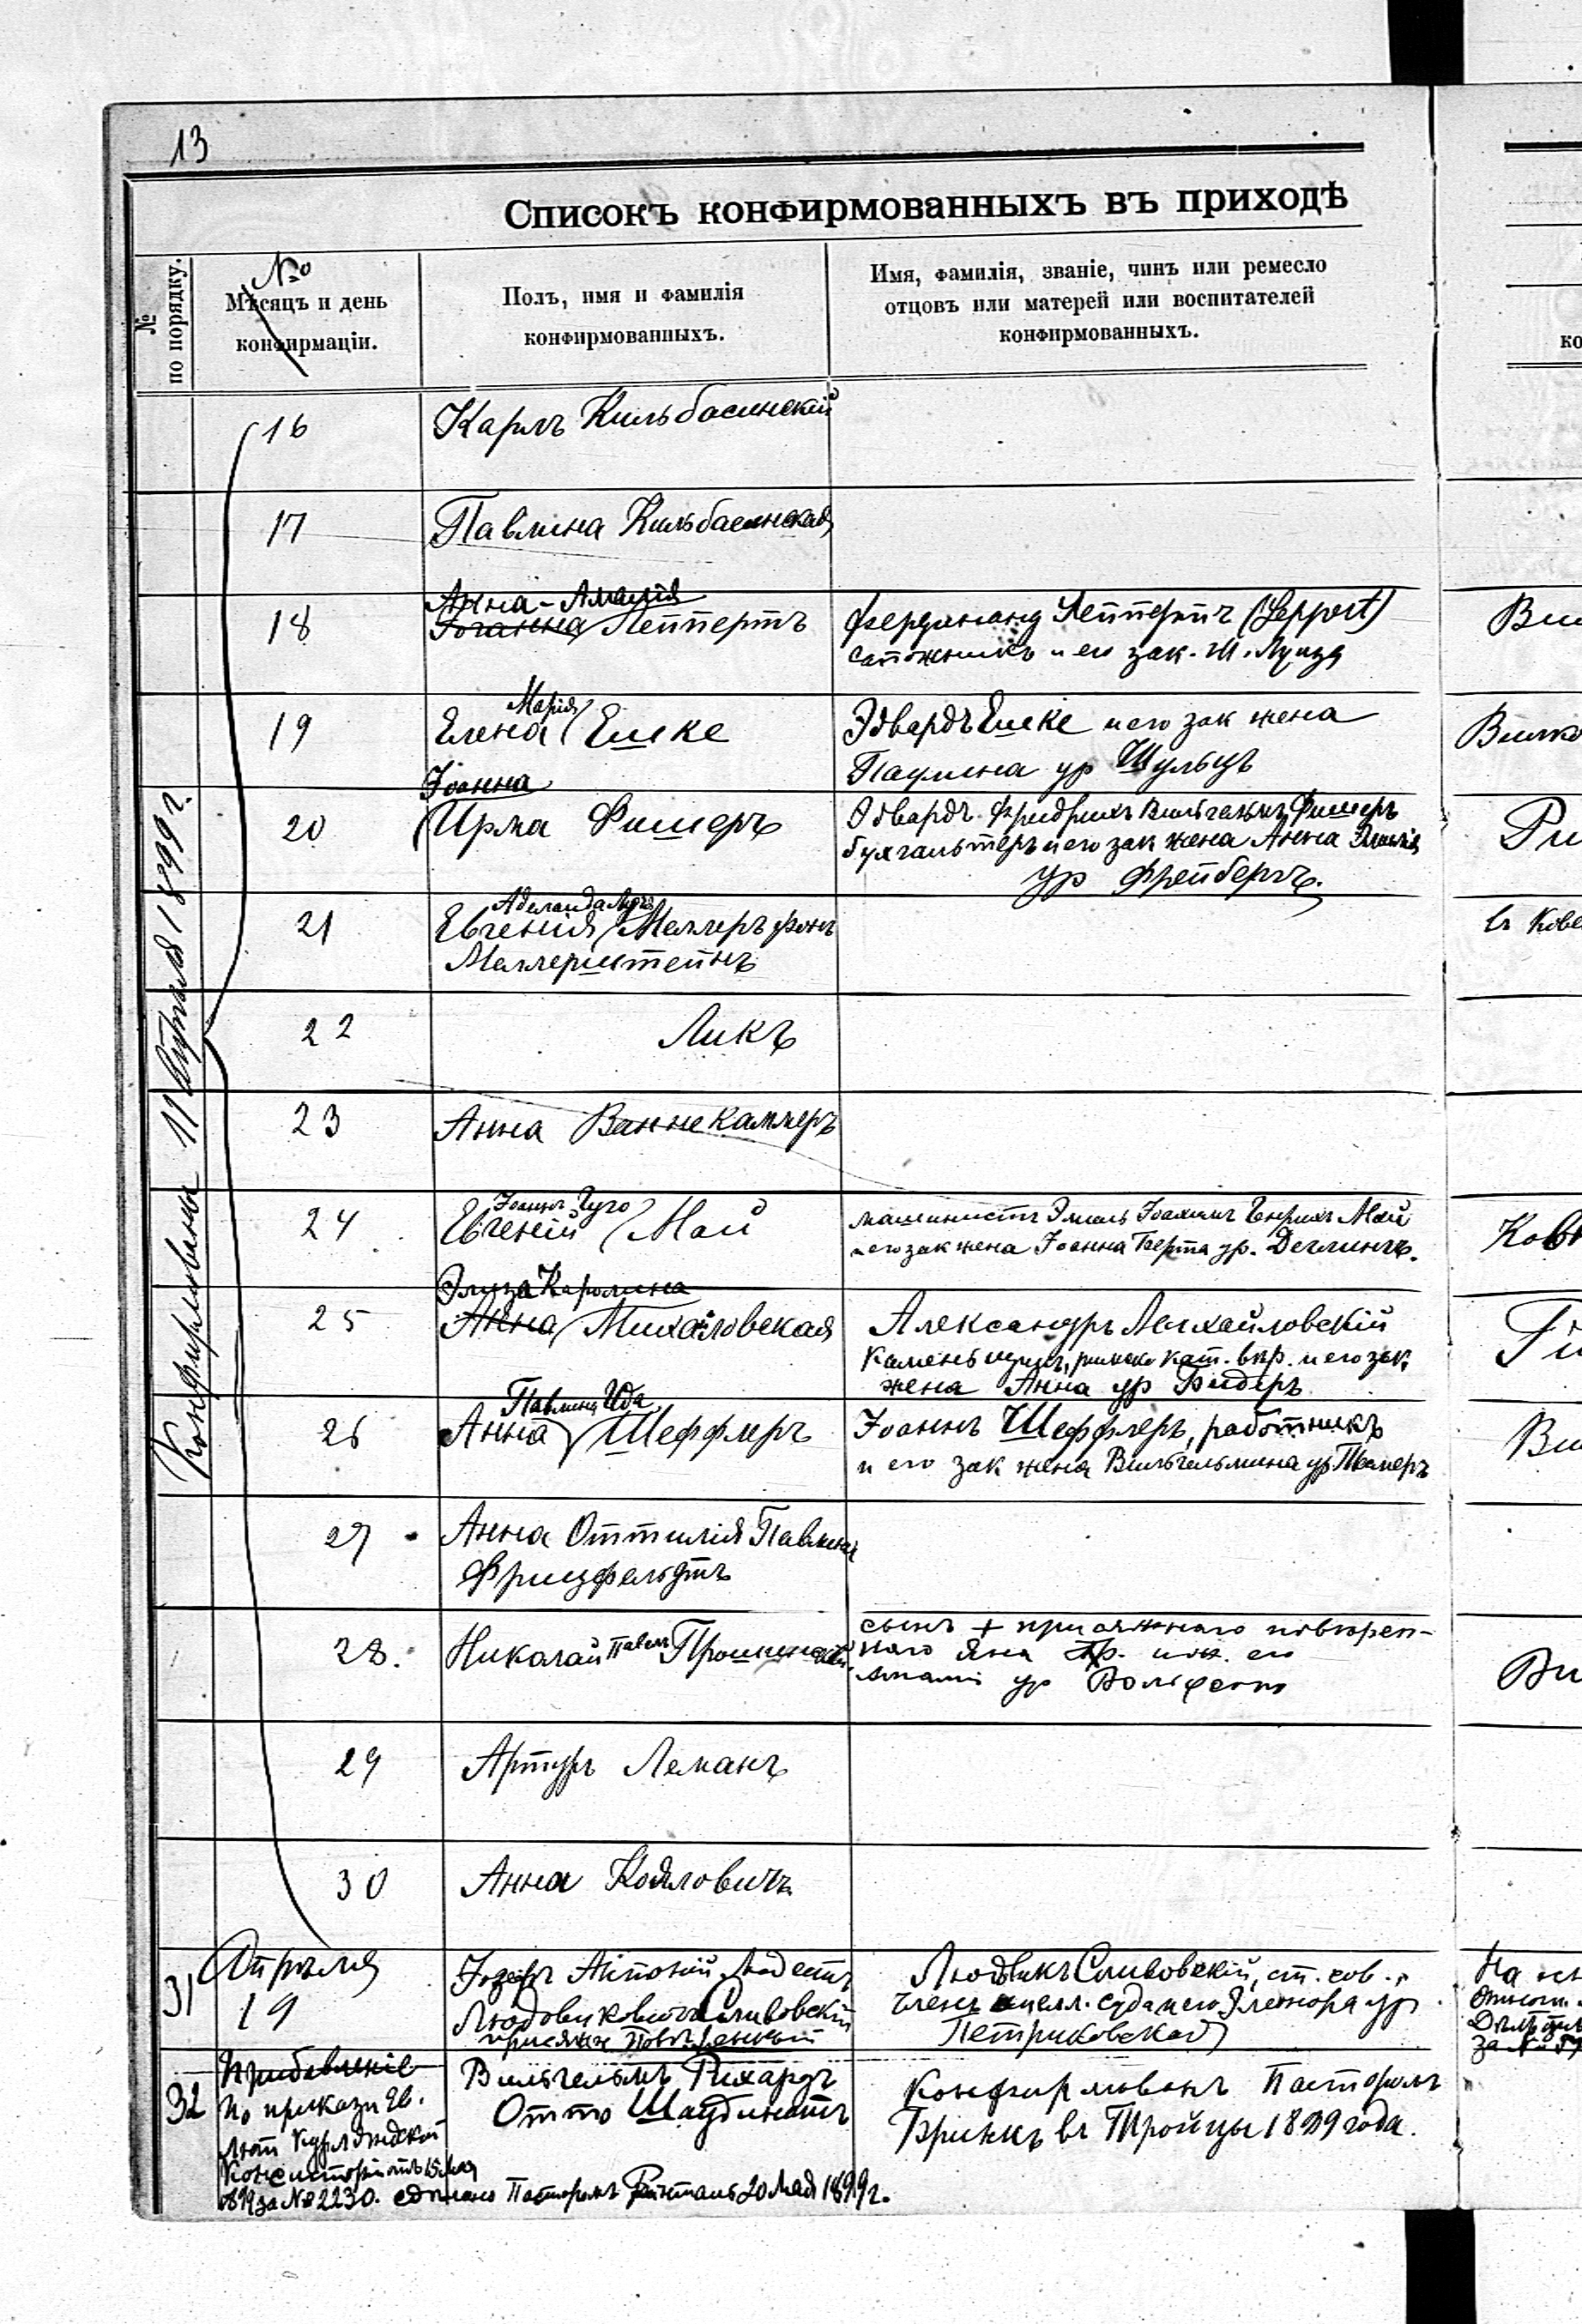 13
Списокъ конфирмованныхъ въ приходѣ
№ по порядку.
№
Мѣсяцъ и день
конфирмаціи.
Полъ, имя и фамилія
конфирмованныхъ.
Имя, фамилія, званіе, чинъ или ремесло
отцовъ или матерей или воспитателей
конфирмованныхъ.
ко
Конфирмованы 11 Апрѣля 1899 г.
16 Карлъ Кильбасинскій
17 Павлина Кильбасинская
Анна-Амалія
18 Іоганна Леппертъ
Фердинанд Леппертъ (Leppert)
сапожникъ и его зак. ж. Луиза
Вил
Марія
19 Елена Ешке
Эдвардъ Ешке и его зак жена
Паулина ур Шульцъ
Вилко
Іоанна
20 Ирма Фишеръ
Эдвардъ Фридрихъ Вильгельмъ Фишеръ
бухгальтеръ и его зак жена Анна Эмилія
ур Фрейбергъ.
Ри
Аделаида
21 Евгенія Меллеръ фонъ
Меллерштейнъ
въ Кове
22 Ликъ
23 АннаВаннекаммеръ
Іоаннъ Гуго
24 Евгеній Май
машинистъ Эмиль Іоахимъ Генрихъ Май
и его зак жена Іоанна Берта ур. Деглингъ.
Ковн
Элиза Каролина
25 Анна Михайловская
Александръ Михайловскій
каменьщикъ, римско кат. вѣр. и его зак.
жена Анна ур Бидеръ
Павлина Ида
26 Анна Шеффлеръ
Іоаннъ Шеффлеръ, работникъ
и его зак жена Вильгельмина ур
Ви
27 Анна Оттилія Павлина
Фрицфельдтъ
28. Николай Павелъ Прошинскій
сынъ + присяжнаго повѣрен-
наго Яна его
ур Вольфертъ
Ви
29 Артуръ Леманъ
30 Анна Кояловичъ
31 Апрѣля
19
Іозефъ Антоній Модестъ
Людовиковичъ Сливовскій
присяжн повѣренный
Людвикъ Сливовскій, ст. сов.,
членъ апелл. суда и его Элеонора ур
Петриковская
На осн
за №
32 Прибавленіе
По приказу Ев.
Лют Курляндской
Консисторіи отъ 15 Мая
1899 за № 2230. сдѣлано Пасторомъ 20 Мая 1899 г.
Вильгельмъ Рихардъ
Отто Шаудинатъ
Конфирмованъ Пасторомъ
Бринкъ въ Тройцы 1899 года.